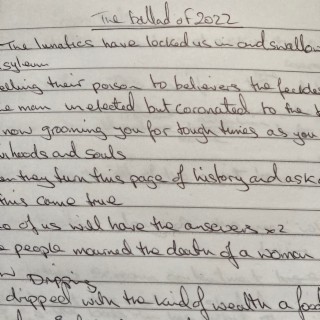 The ballad of 2022
The lunatics have locked us in and swallow
asylum
elling their poison to believers the feckles
e man unelected but coronated to the t
now grooming you for tough times as you
hoods and souls
en they turn this page of history and ask
this come true
o of us will have the answers x2
e people mourned the death of a woman
w Dripping
dripped with the kind of wealth a food